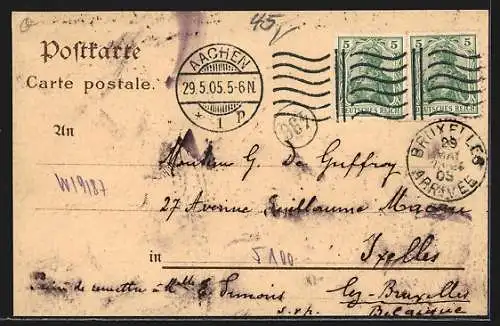 45
Postkarte
Carte postale.
AACHEN
29.5.05.5-6N.
* 1 p
5 5
DEUTSCHES REICH
5 5
DEUTSCHES REICH
BRUXELLES
29
MAI
05
ARRIVEE
An
Monsieur G. De Guffroy
W19187
27 Avenue Guillaume Macau
in Ixelles
5100
Prière de remettre à Mlle E Simons
s.v.p. Lez-Bruxelles
Belgique